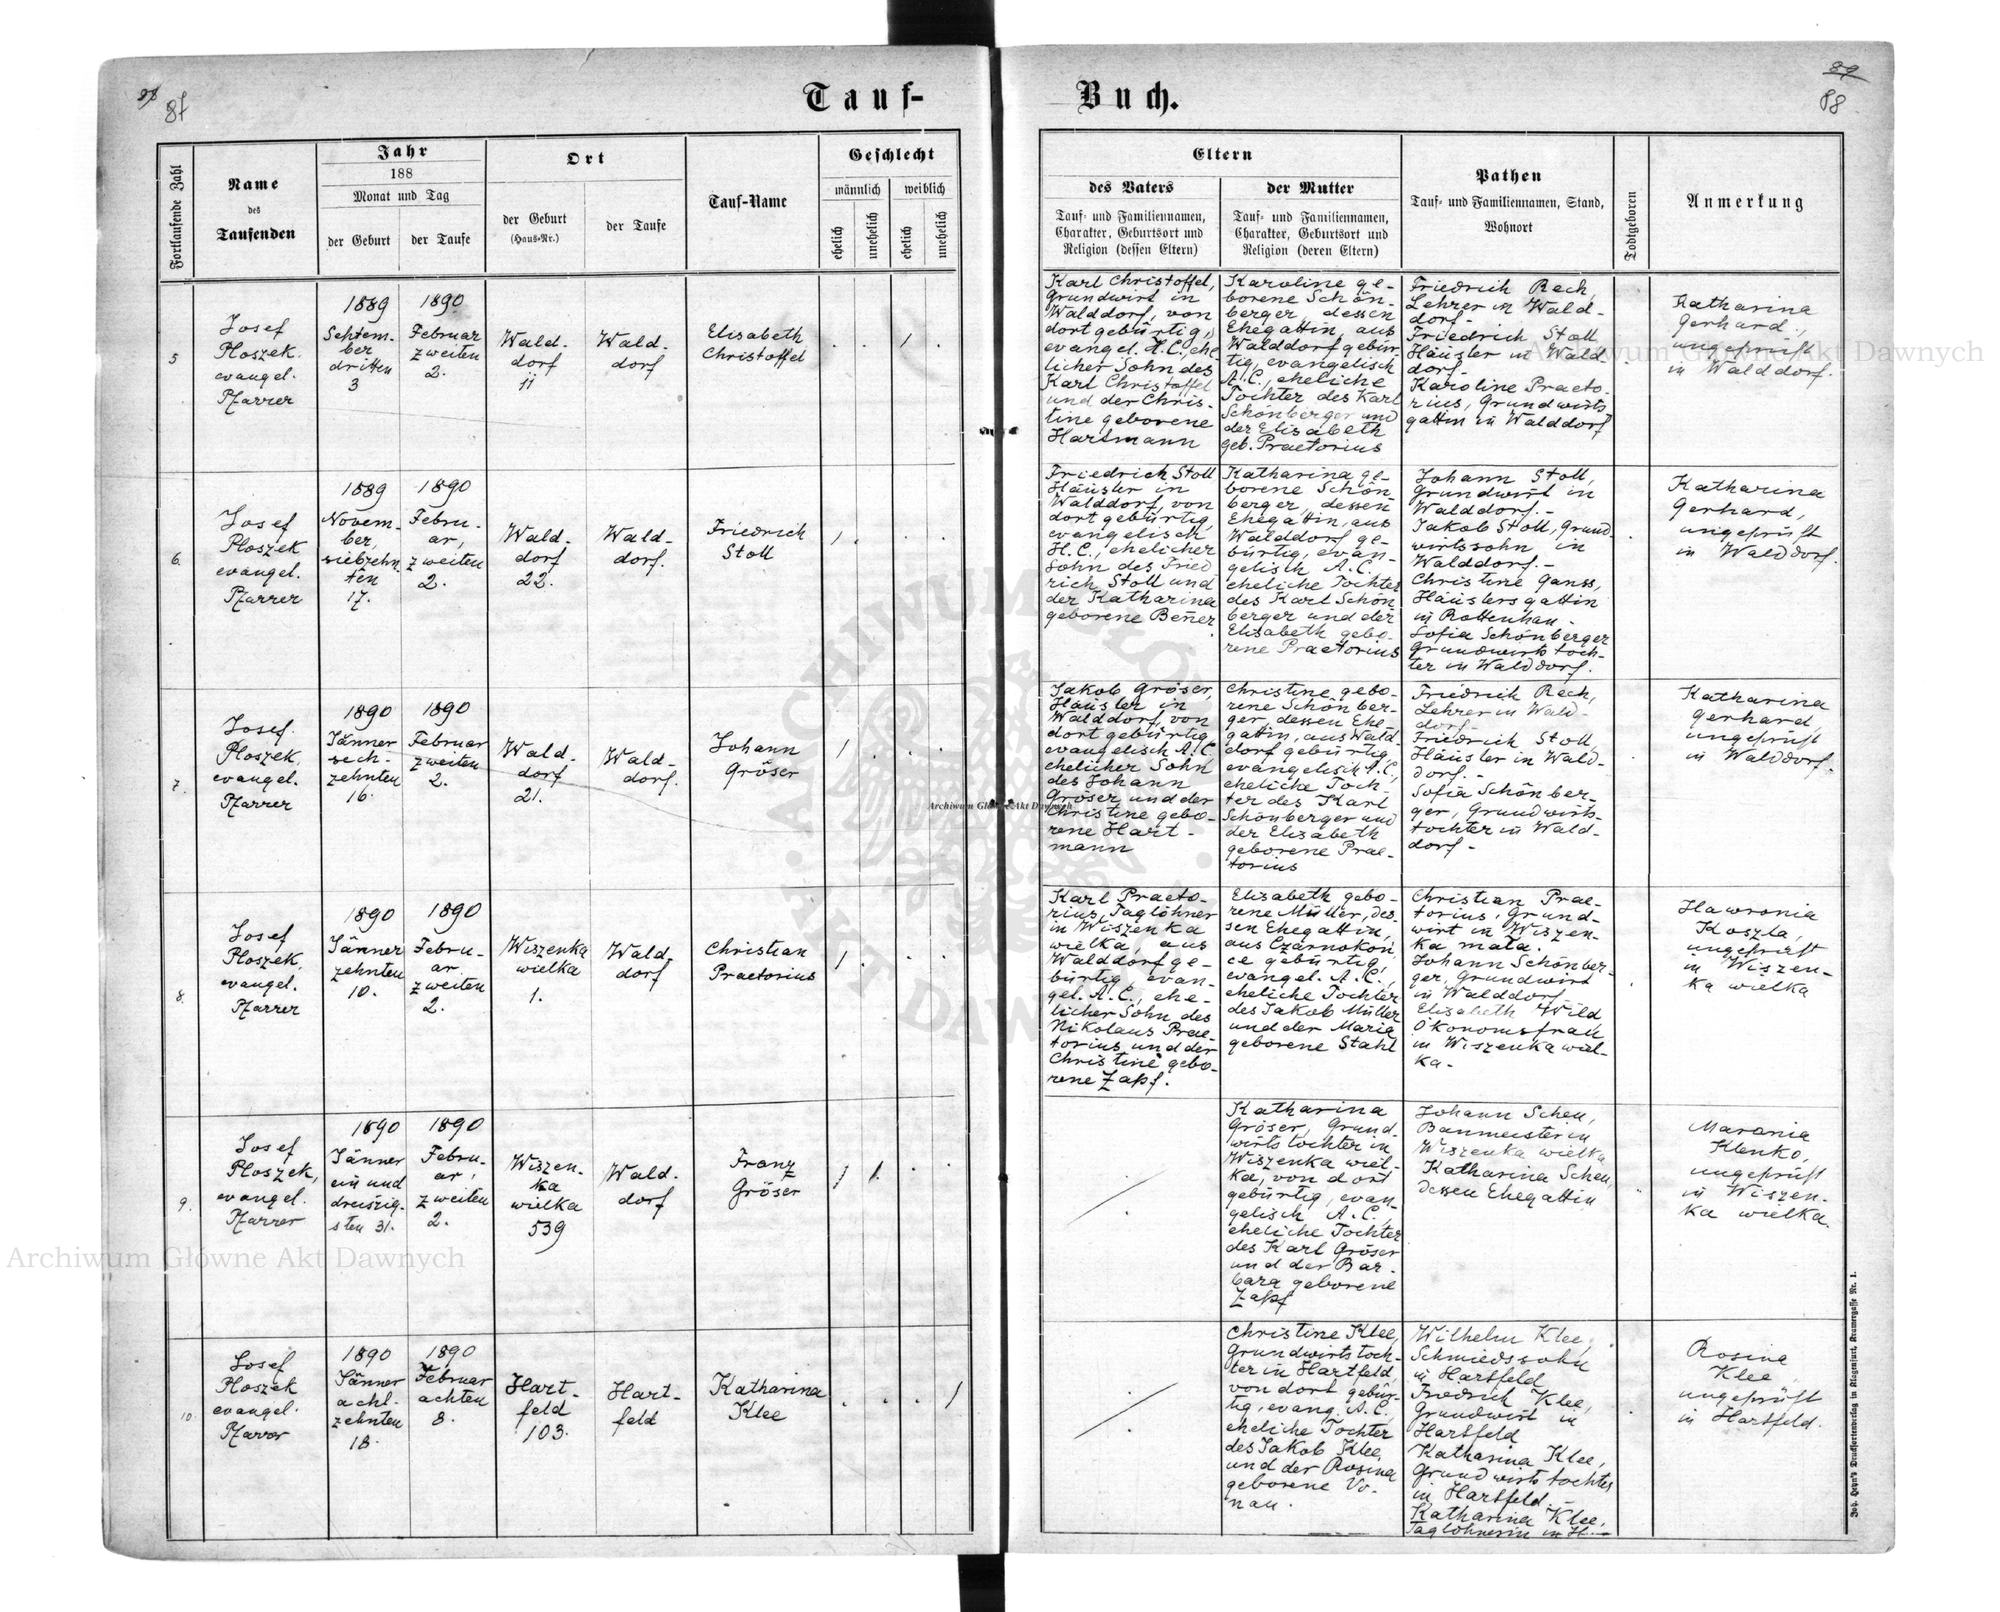 87
Tauf-
Buch.
89
88
Fortlaufende Zahl
Name
des
Taufenden
Jahr
188
Monat und Tag
der Geburt
der Taufe
Ort
der Geburt
(Haus-Nr.)
der Taufe
Tauf-Name
Geschlecht
männlich
weiblich
ehelich
unehelich
ehelich
unehelich
Eltern
des Vaters
Tauf- und Familiennamen,
Charakter, Geburtsort und
Religion (dessen Eltern)
der Mutter
Tauf- und Familiennamen,
Charakter, Geburtsort und
Religion (deren Eltern)
Pathen
Tauf- und Familiennamen, Stand,
Wohnort
Todtgeboren
Anmerkung
5
Josef
Ploszek
evangel.
Pfarrer
1889
Septem-
ber
dritten
3
1890
Februar
zweiten
2.
Wald-
dorf
11
Wald-
dorf
Elisabeth
Christoffel
Karl Christoffel,
Grundwirt in
Walddorf, von
dort gebürtig,
evangel. H.C., ehe
licher Sohn des
Karl Christoffel
und der Chris-
tine geborene
Hartmann
Karoline ge-
borene Schön-
berger dessen
Ehegattin, aus
Walddorf gebür
tig, evangelisch
A.C., eheliche
Tochter des Karl
Schönberger und
der Elisabeth
geb. Praetorius
Friedrich Rech,
Lehrer in Wald-
dorf-
Friedrich Stoll
Häusler in Wald
dorf-
Karoline Praeto-
rius, Grundwirts
gattin in Walddorf
Katharina
Gerhard,
ungeprüft
in Walddorf.
6.
Josef
Ploszek
evangel.
Pfarrer
1889
Novem-
ber,
siebzehn
ten
17.
1890
Febru-
ar,
zweiten
2.
Wald-
dorf
22.
Wald-
dorf.
Friedrich
Stoll
Friedrich Stoll
Häusler in
Walddorf, von
dort gebürtig,
evangelisch
H.C., ehelicher
Sohn des Fried
rich Stoll und
der Katharina
geborene Bener
Katharina ge-
borene Schön-
berger, dessen
Ehegattin, aus
Walddorf ge-
bürtig, evan-
gelisch A.C.
eheliche Tochter
des Karl Schön
berger und der
Elisabeth gebo-
rene Praetorius
Johann Stoll,
Grundwirt in
Walddorf.-
Jakob Stoll, Grund
wirtssohn in
Walddorf.-
Christine Ganss,
Häuslersgattin
in Rottenhan-
Sofia Schönberger
Grundwirtstoch-
ter in Walddorf.
Katharina
Gerhard,
ungeprüft
in Walddorf.
7.
Josef
Ploszek,
evangel.
Pfarrer
1890
Jänner
sech-
zehnten
16.
1890
Februar
zweiten
2.
Wald-
dorf
21.
Wald-
dorf.
Johann
Gröser
Jakob Gröser,
Häusler in
Walddorf, von
dort gebürtig
evangelisch A.C.
ehelicher Sohn
des Johann
Gröser und der
Christine gebo-
rene Hart-
mann
Christine gebo-
rene Schönber-
ger, dessen Ehe-
gattin, aus Wald-
dorf gebürtig
evangelisch A.C.,
eheliche Toch-
ter des Karl
Schönberger und
der Elisabeth
geborene Prae-
torius
Friedrich Rech,
Lehrer in Wald-
dorf
Friedrich Stoll,
Häusler in Wald-
dorf.-
Sofia Schönber-
ger, Grundwirts-
tochter in Wald-
dorf-
Katharina
Gerhard,
ungeprüft
in Walddorf.
8.
Josef
Ploszek,
evangel.
Pfarrer
1890
Jänner
zehnten
10.
1890
Febru-
ar
zweiten
2.
Wiszenka
wielka
1.
Wald-
dorf
Christian
Praetorius
Karl Praeto-
rius, Taglöhner
in Wiszenka
wielka, aus
Walddorf ge-
bürtig, evan-
gel. A.C., ehe-
licher Sohn des
Nikolaus Prae-
torius und der
Christine gebo-
rene Zapf.
Elisabeth gebo-
rene Müller, des-
sen Ehegattin,
aus Czarnokon
ce gebürtig,
evangel. A.C.,
eheliche Tochter
des Jakob Müller
und der Maria
geborene Stahl
Christian Prae-
torius, Grund-
wirt in Wiszen-
ka mała.
Johann Schönber-
ger, Grundwirt
in Walddorf
Elisabeth Wild
Ökonomsfrau
in Wiszenka wiel-
ka-
Hawronia
Koszla,
ungeprüft
in Wiszen-
ka wielka
9.
Josef
Ploszek,
evangel.
Pfarrer
1890
Jänner
ein und
dreiszig-
sten 31.
1890
Febru-
ar,
zweiten
2.
Wiszen-
ka
wielka
539
Wald-
dorf
Franz
Gröser
Katharina
Gröser, Grund-
wirtstochter in
Wiszenka wiel-
ka, von dort
gebürtig, evan-
gelisch A.C.,
eheliche Tochter
des Karl Gröser
und der Bar-
bara geborene
Zapf
Johann Scheu,
Baumeister in
Wiszenka wielka
Katharina Scheu,
dessen Ehegattin
Marania
Klenko,
ungeprüft
in Wiszen-
ka wielka.
10.
Josef
Ploszek
evangel.
Pfarrer
1890
Jänner
acht-
zehnten
18.
1890
Februar
achten
8.
Hart-
feld
103.
Hart-
feld
Katharina
Klee
Christine Klee,
Grundwirtstoch-
ter in Hartfeld,
von dort gebür-
tig, evang. A.C.,
eheliche Tochter
des Jakob Klee
und der Rosina
geborene Vo-
nau.
Wilhelm Klee,
Schmiedssohn
in Hartfeld
Friedrich Klee,
Grundwirt in
Hartfeld
Katharina Klee,
Grundwirtstochter
in Hartfeld.-
Katharina Klee,
Taglöhnerin in H.-
Rosina
Klee,
ungeprüft
in Hartfeld.
Joh. Heyn's Drucksortenverlag in Klagenfurt, Kramergasse Nr. 1.
Archiwum Główne Akt Dawnych
Archiwum Główne Akt Dawnych
Archiwum Główne Akt Dawnych
ARCHIWUM GŁÓWNE AKT DAWNYCH